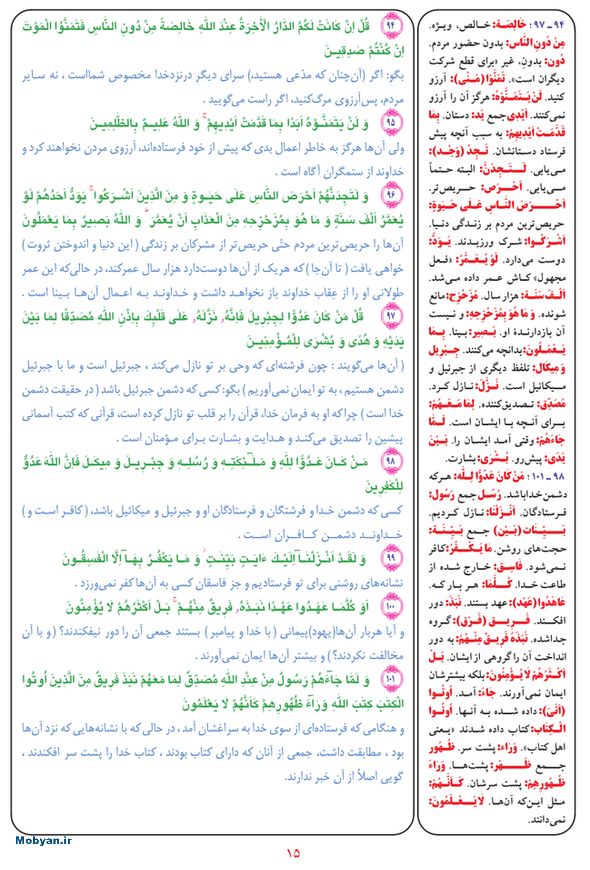 ۹۴ ـ ۹۷: خالِصَة: خالص، ویژه.
مِنْ دُونِ النّاس: بدون حضور مردم.
دُون: بدونِ، غیر «برای قطع شرکت
دیگران است». تَمَنَّوُا (مَنی): آرزو
کنید. لَنْ یَتَمَنَّوْهُ: هرگز آن را آرزو
نمی‌کنند. اَیْدِی جمع یَد: دستان. بِما
قَدَّمَتْ اَیْدِیهِمْ: به سبب آنچه پیش
فرستاد دستانشان. تَجِدُ (وَجَدَ):
می‌یابی. لَتَجِدَنَّ: البته حتماً
می‌یابی. اَحْرَص: حریص‌تر.
اَحْرَصَ النّاسِ عَلی حَیوة:
حریص‌ترین مردم بر زندگی دنیا.
اَشْرَکُوا: شرک ورزیدند. یَوَدُّ:
دوست می‌دارد. لَوْ یُعَمَّرُ: «فعل
مجهول» کاش عمر داده می‌شد.
اَلْفَ سَنَة: هزار سال. مُزَحْزِح: مانع
شونده. وَ ما هُوَ بِمُزَحْزِحِهِ: و نیست
آن بازدارندهٔ او. بَصیر: بینا. بِما
یَعْمَلُونَ: بدانچه می‌کنند. جِبْریل
وَ میکال: تلفظ دیگری از جبرئیل و
میکائیل است. نَزَّلَ: نازل کرد.
مُصَدِّق: تصدیق‌کننده. لِما مَعَهُمْ:
برای آنچه با ایشان است. لَمّا
جاءَهُمْ: وقتی آمد ایشان را. بَیْنَ
یَدَی: پیش‌رو. بُشْری: بشارت.
۹۸ ـ ۱۰۱: مَنْ کانَ عَدُوًّا لِلّه: هرکه
دشمن خدا باشد. رُسُل جمع رَسُول:
فرستادگان. اَنْزَلْنا: نازل کردیم.
بَیِّنات (بَیْن) جمع بَیِّنَة:
حجت‌های روشن. ما یَکْفُرُ: کافر
نمی‌شود. فاسِق: خارج شده از
طاعت خدا. کُلَّما: هر بار که.
عاهَدُوا (عَهْد): عهد بستند. نَبَذَ: دور
افکند. فَریق (فَرق): گروه
جداشده. نَبَذَهُ فَریقٌ مِنْهُمْ: به دور
انداخت آن را گروهی از ایشان. بَلْ
اَکْثَرُهُمْ لا یُؤْمِنُونَ: بلکه بیشترشان
ایمان نمی‌آورند. جاءَ: آمد. اُوتُوا
(اَتَیَ): داده شده به آنها. اُوتُوا
الْکِتاب: کتاب داده شدند «یعنی
اهل کتاب». وَراءَ: پشت سر. ظُهُور
جمع ظَهْر: پشت‌ها. وَراءَ
ظُهُورِهِمْ: پشت سرشان. کَاَنَّهُمْ:
مثل این‌که آن‌ها. لا یَعْلَمُونَ:
نمی‌دانند.
۹۴ قُلْ اِنْ کَانَتْ لَکُمُ الدَّارُ الْأٰخِرَةُ عِنْدَ اللهِ خَالِصَةً مِنْ دُونِ النَّاسِ فَتَمَنَّوُا الْمَوْتَ
اِنْ کُنْتُمْ صٰدِقِینَ
بگو: اگر (آن‌چنان که مدّعی هستید،) سرای دیگر درنزدخدا مخصوص شمااست ، نه سایر
مردم، پس‌آرزوی مرگ‌کنید، اگر راست می‌گویید .
۹۵ وَ لَنْ یَتَمَنَّوْهُ اَبَدًا بِمَا قَدَّمَتْ اَیْدِیهِمْ ۚ وَ اللهُ عَلِیمٌ بِالظّٰلِمِینَ
ولی آن‌ها هرگز به خاطر اعمال بدی که پیش از خود فرستاده‌اند، آرزوی مردن نخواهند کرد و
خداوند از ستمگران آگاه است .
۹۶ وَ لَتَجِدَنَّهُمْ اَحْرَصَ النَّاسِ عَلٰی حَیٰوةٍ وَ مِنَ الَّذِینَ اَشْرَکُوا ۚ یَوَدُّ اَحَدُهُمْ لَوْ
یُعَمَّرُ اَلْفَ سَنَةٍ وَ مَا هُوَ بِمُزَحْزِحِهِ مِنَ الْعَذَابِ اَنْ یُعَمَّرَ ۗ وَ اللهُ بَصِیرٌ بِمَا یَعْمَلُونَ
آن‌ها را حریص‌ترین مردم حتّی حریص‌تر از مشرکان بر زندگی ( این دنیا و اندوختن ثروت )
خواهی یافت ( تا آن‌جا ) که هریک از آن‌ها دوست‌دارد هزار سال عمرکند، در حالی‌که این عمر
طولانی او را از عِقاب خداوند باز نخواهد داشت و خداوند به اعمال آن‌ها بینا است .
۹۷ قُلْ مَنْ کَانَ عَدُوًّا لِجِبْرِیلَ فَاِنَّهُ نَزَّلَهُ عَلٰی قَلْبِکَ بِاِذْنِ اللهِ مُصَدِّقًا لِمَا بَیْنَ
یَدَیْهِ وَ هُدًی وَ بُشْرٰی لِلْمُؤْمِنِینَ
( آن‌ها می‌گویند : چون فرشته‌ای که وحی بر تو نازل می‌کند ، جبرئیل است و ما با جبرئیل
دشمن هستیم ، به تو ایمان نمی‌آوریم ) بگو: کسی که دشمن جبرئیل باشد ( در حقیقت دشمن
خدا است ) چراکه او به فرمان خدا، قرآن را بر قلب تو نازل کرده است، قرآنی که کتب آسمانی
پیشین را تصدیق می‌کند و هدایت و بشارت برای مؤمنان است .
۹۸ مَنْ کَانَ عَدُوًّا لِلّٰهِ وَ مَلٰٓئِکَتِهِ وَ رُسُلِهِ وَ جِبْرِیلَ وَ مِیکٰلَ فَاِنَّ اللهَ عَدُوٌّ
لِلْکٰفِرِینَ
کسی که دشمن خدا و فرشتگان و فرستادگان او و جبرئیل و میکائیل باشد، (کافر است و )
خداوند دشمن کافران است .
۹۹ وَ لَقَدْ اَنْزَلْنَآ اِلَیْکَ اٰیٰتٍ بَیِّنٰتٍ ۖ وَ مَا یَکْفُرُ بِهَآ اِلَّا الْفٰسِقُونَ
نشانه‌های روشنی برای تو فرستادیم و جز فاسقان کسی به آن‌ها کفر نمی‌ورزد .
۱۰۰ اَوَ کُلَّمَا عٰهَدُوا عَهْدًا نَبَذَهُ فَرِیقٌ مِنْهُمْ ۚ بَلْ اَکْثَرُهُمْ لَا یُؤْمِنُونَ
و آیا هربار آن‌ها(یهود)پیمانی ( با خدا و پیامبر ) بستند جمعی آن را دور نیفکندند؟ ( و با آن
مخالفت نکردند؟ ) و بیشتر آن‌ها ایمان نمی‌آورند .
۱۰۱ وَ لَمَّا جَآءَهُمْ رَسُولٌ مِنْ عِنْدِ اللهِ مُصَدِّقٌ لِمَا مَعَهُمْ نَبَذَ فَرِیقٌ مِنَ الَّذِینَ اُوتُوا
الْکِتٰبَ کِتٰبَ اللهِ وَرَآءَ ظُهُورِهِمْ کَاَنَّهُمْ لَا یَعْلَمُونَ
و هنگامی که فرستاده‌ای از سوی خدا به سراغشان آمد ، در حالی که با نشانه‌هایی که نزد آن‌ها
بود ، مطابقت داشت، جمعی از آنان که دارای کتاب بودند ، کتاب خدا را پشت سر افکندند ،
گویی اصلاً از آن خبر ندارند.
Mobyan.ir
۱۵